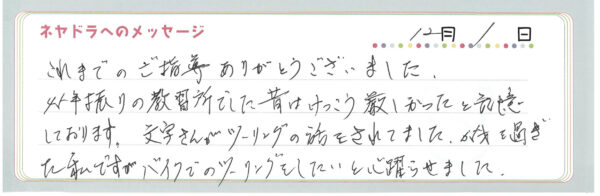 ネヤドラへのメッセージ
12月 1 日
これまでのご指導ありがとうございました.
45年振りの教習所でした昔はけっこう厳しかったと記憶
しております。文字さんがツーリングの話をされてました.が才を過ぎ
た私ですがバイクでのツーリングをしたいと心躍らせました.